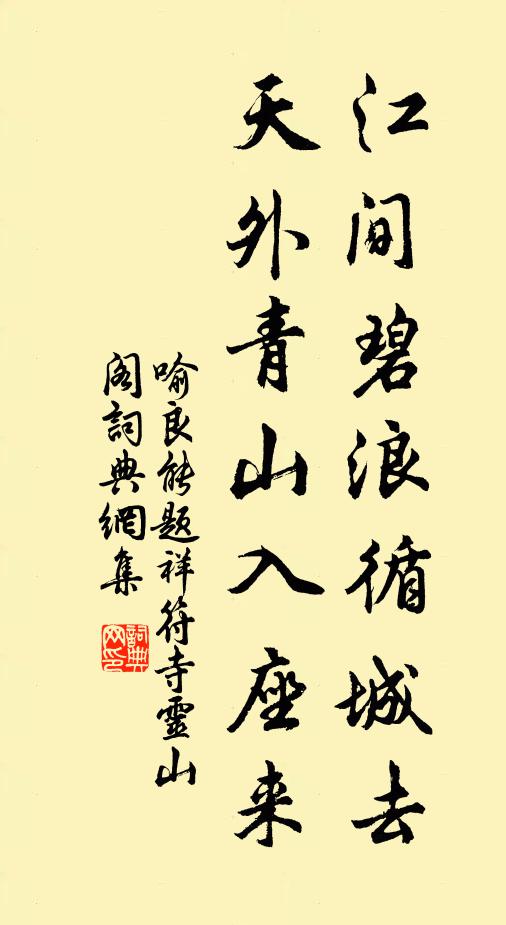 江间碧浪循城去
天外青山入座来
喻良能题祥符寺靈山
阁詞典網集
詞典
网印